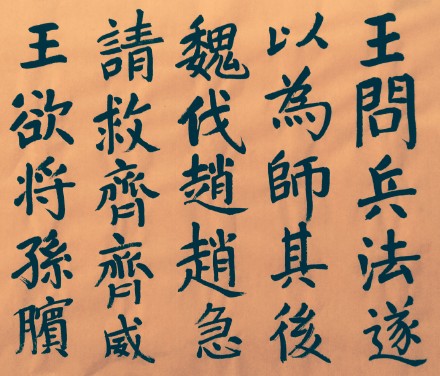 王問兵法遂
以為師其後
魏伐趙趙急
請救齊齊威
王欲将孫臏